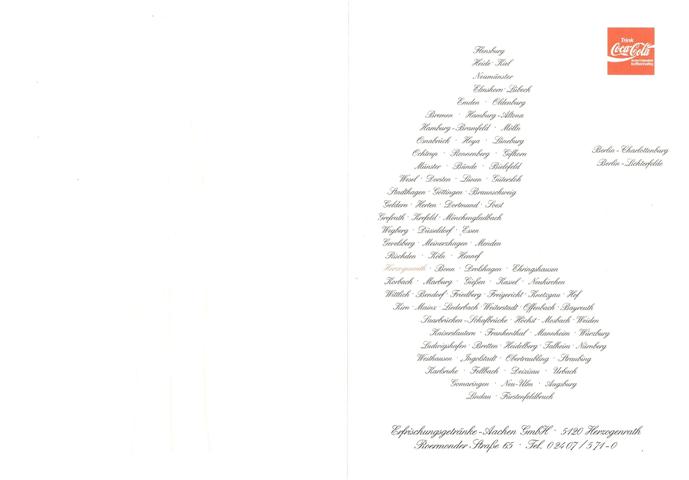 Trink
Coca-Cola
Flensburg
Heide · Kiel
Neumünster
Elmshorn · Lübeck
Emden · Oldenburg
Bremen · Hamburg-Altona
Hamburg-Bramfeld · Mölln
Osnabrück · Hoya · Lüneburg
Ochtrup · Ronnenberg · Gifhorn
Berlin-Charlottenburg
Münster · Bünde · Bielefeld
Berlin-Lichterfelde
Wesel · Dorsten · Lünen · Gütersloh
Stadthagen · Göttingen · Braunschweig
Geldern · Herten · Dortmund · Soest
Grefrath · Krefeld · Mönchengladbach
Wegberg · Düsseldorf · Essen
Gevelsberg · Meinerzhagen · Menden
Köln · Hennef
Herzogenrath · Bonn · Drolshagen · Ehringshausen
Korbach · Marburg · Gießen · Kassel · Neukirchen
Wittlich · Bendorf · Friedberg · Freigericht · Knetzgau · Hof
Kirn · Mainz · Liederbach · Weiterstadt · Offenbach · Bayreuth
Saarbrücken-Schafbrücke · Höchst · Mosbach · Weiden
Kaiserslautern · Frankenthal · Mannheim · Würzburg
Ludwigshafen · Bretten · Heidelberg · Talheim · Nürnberg
Ingolstadt · Obertraubling · Straubing
Karlsruhe · Fellbach · Deizisau · Urbach
Gomaringen · Neu-Ulm · Augsburg
Lindau · Fürstenfeldbruck
Erfrischungsgetränke-Aachen GmbH · 5120 Herzogenrath
Roermonder Straße 65 · Tel. 02407/571-0